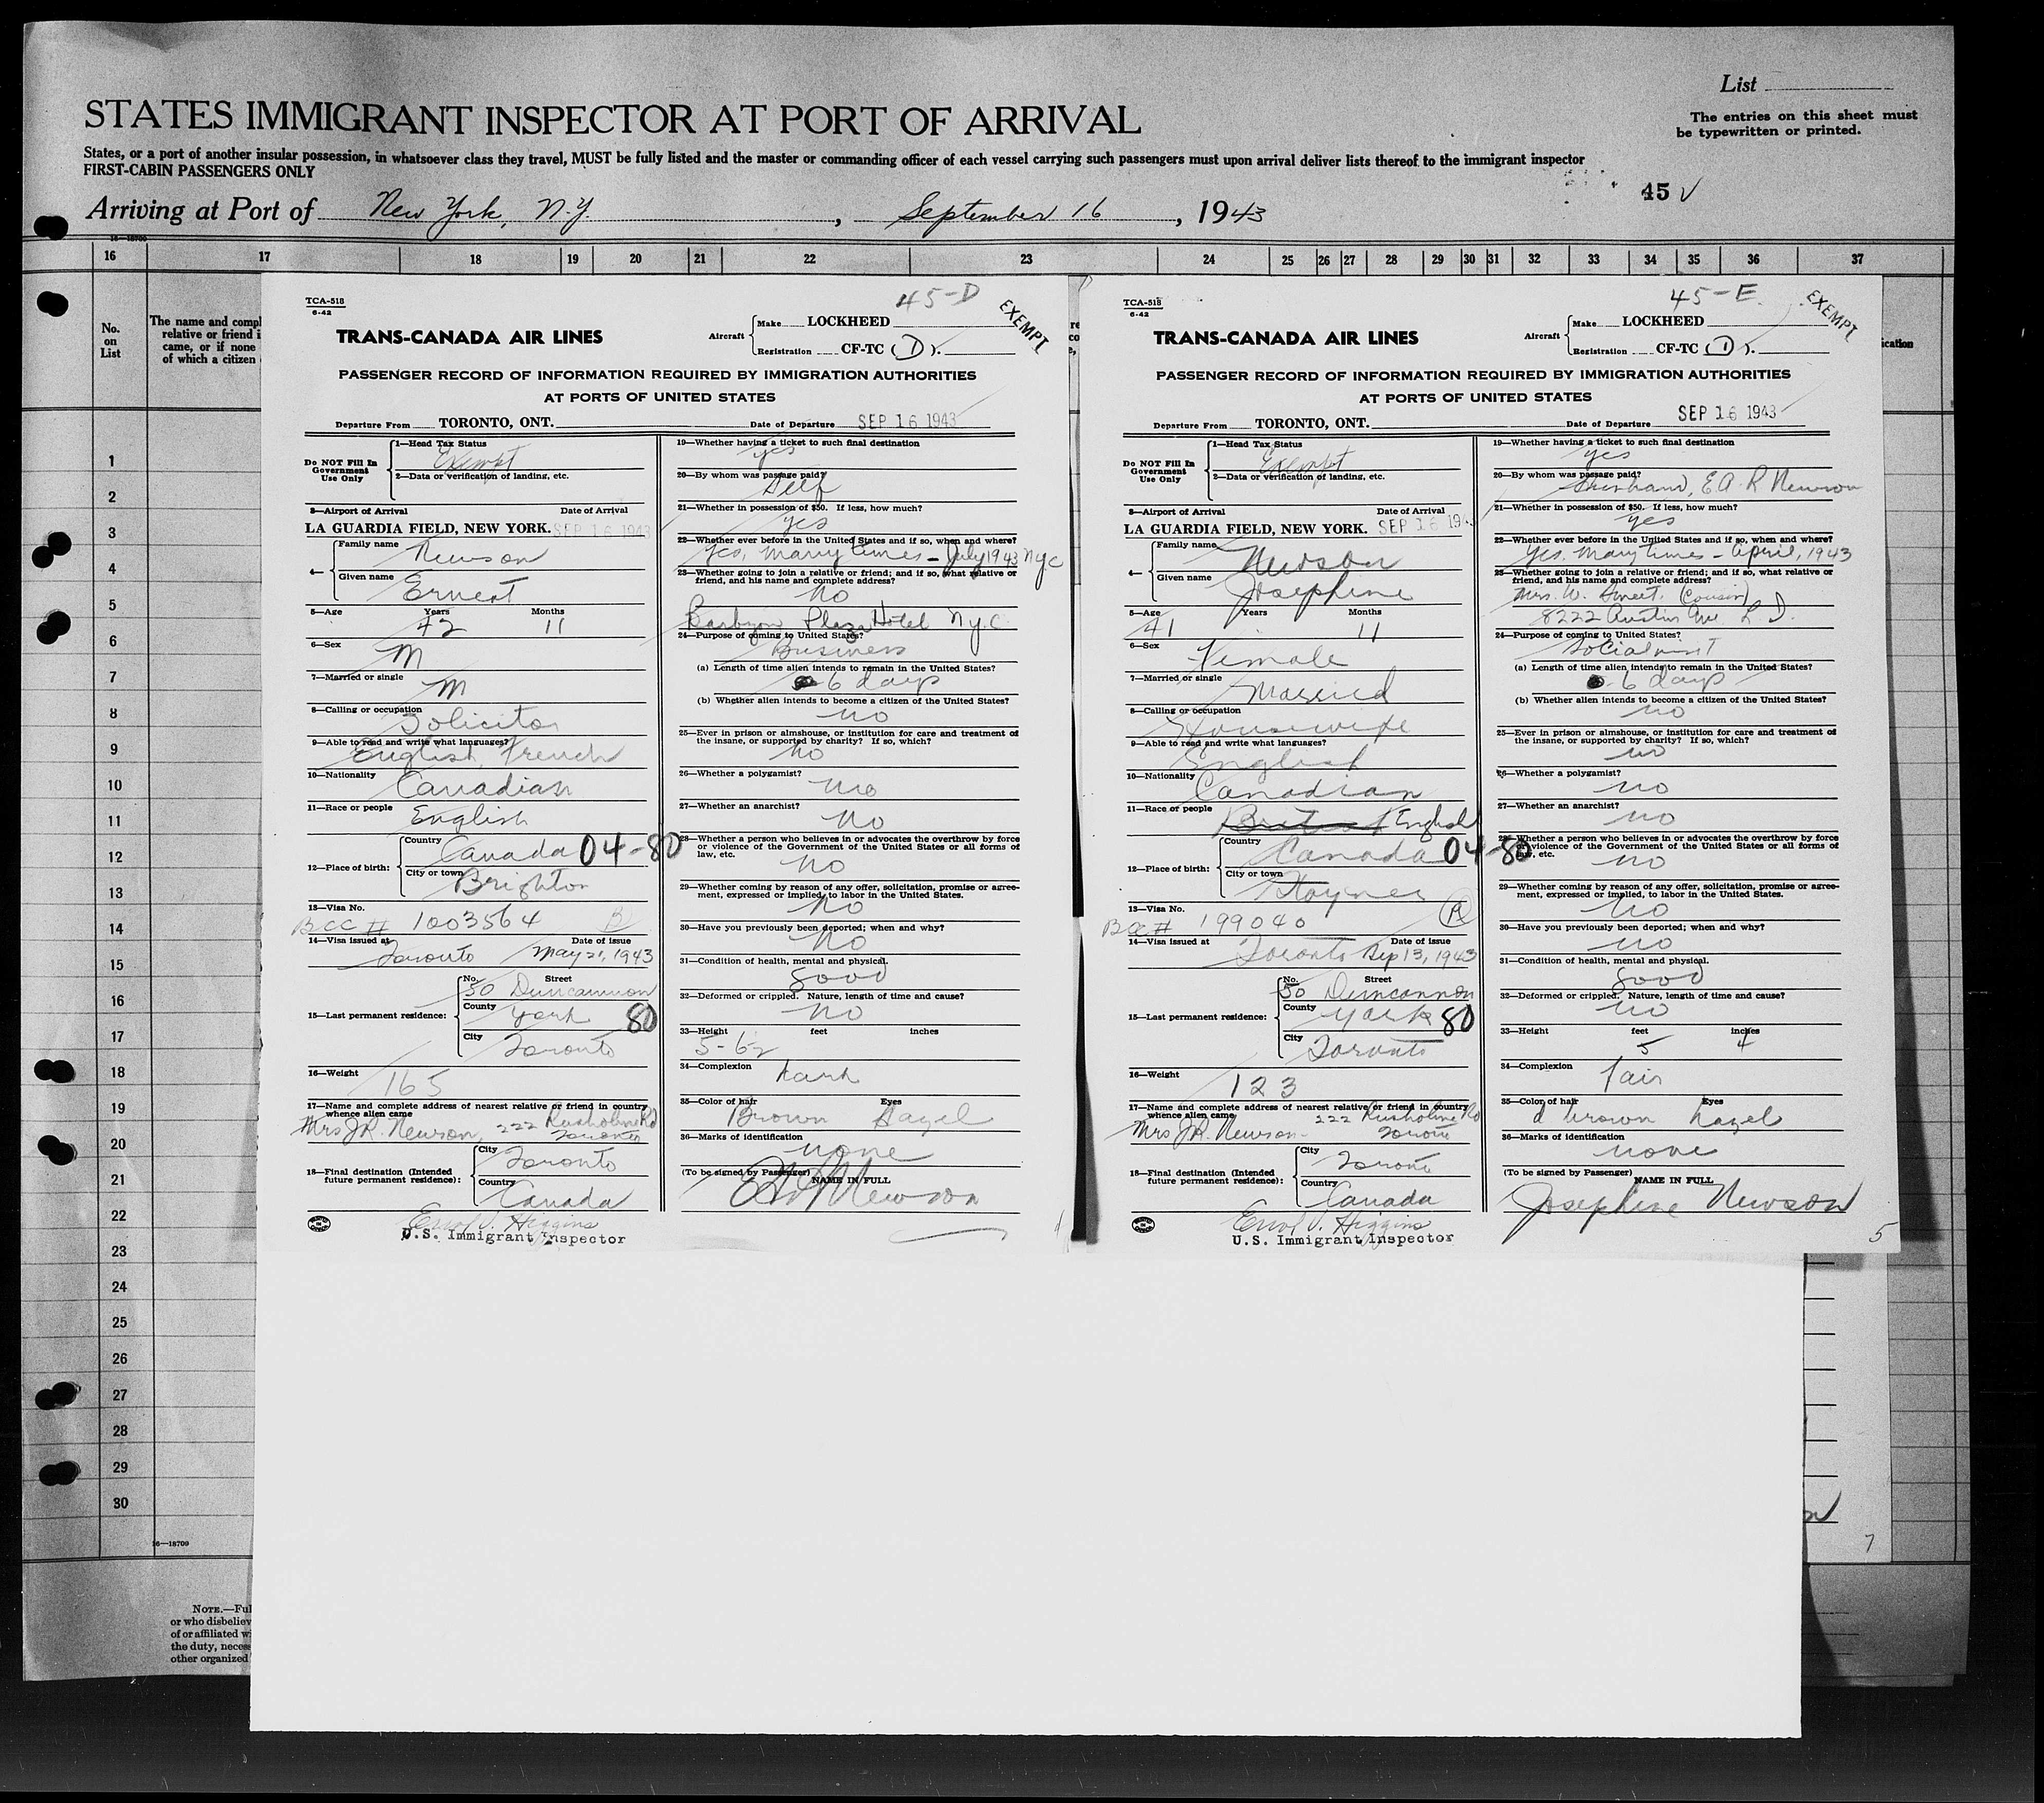 List
STATES IMMIGRANT INSPECTOR AT PORT OF ARRIVAL
The entries on this sheet must
be typewritten or printed.
States, or a port of another insular possession, in whatsoever class they travel, MUST be fully listed and the master or commanding officer of each vessel carrying such passengers must upon arrival deliver lists thereof to the immigrant inspector
FIRST-CABIN PASSENGERS ONLY
45 √
Arriving at Port of New York, N.Y. , September 16 , 1943
16—18700
16 17 18 19 20 21 22 23 24 25 26 27 28 29 30 31 32 33 34 35 36 37
No.
on
List
The name and compl
relative or friend i
came, or if none
of which a citizen
ication
1
2
3
4
5
6
7
8
9
10
11
12
13
14
15
16
17
18
19
20
21
22
23
24
25
26
27
28
29
30
16—18700
NOTE.—Ful
or who disbeliev
of or affiliated wi
the duty, neces
other organized
TCA-518
6-42
45-D
EXEMPT
TRANS-CANADA AIR LINES
Aircraft
Make LOCKHEED
Registration CF-TC (D).
PASSENGER RECORD OF INFORMATION REQUIRED BY IMMIGRATION AUTHORITIES
AT PORTS OF UNITED STATES
Departure From TORONTO, ONT. Date of Departure SEP 16 1943
Do NOT Fill In
Government
Use Only
1—Head Tax Status
Exempt
2—Data or verification of landing, etc.
3—Airport of Arrival Date of Arrival
LA GUARDIA FIELD, NEW YORK. SEP 16 1943
4—
Family name
Newson
Given name
Ernest
5—Age Years Months
42 11
6—Sex
M
7—Married or single
M
8—Calling or occupation
Solicitor
9—Able to read and write what languages?
English, French
10—Nationality
Canadian
11—Race or people
English
12—Place of birth:
Country
Canada 04-80
City or town
Brighton
13—Visa No.
BCC # 1003564 B
14—Visa issued at Date of issue
Toronto May 21, 1943
15—Last permanent residence:
No. Street
50 Duncannon
County
York 80
City
Toronto
16—Weight
165
17—Name and complete address of nearest relative or friend in country
whence alien came
Mrs J.R. Newson, 222 Rusholme Rd
Toronto
18—Final destination (Intended
future permanent residence):
City
Toronto
Country
Canada
Errol J. Higgins
U.S. Immigrant Inspector
19—Whether having a ticket to such final destination
yes
20—By whom was passage paid?
Self
21—Whether in possession of $50. If less, how much?
yes
22—Whether ever before in the United States and if so, when and where?
Yes, many times - July 1943 NYC
23—Whether going to join a relative or friend; and if so, what relative or
friend, and his name and complete address?
No
Barbizon Plaza Hotel N.Y.C.
24—Purpose of coming to United States?
Business
(a) Length of time alien intends to remain in the United States?
6 days
(b) Whether alien intends to become a citizen of the United States?
no
25—Ever in prison or almshouse, or institution for care and treatment of
the insane, or supported by charity? If so, which?
no
26—Whether a polygamist?
no
27—Whether an anarchist?
no
28—Whether a person who believes in or advocates the overthrow by force
or violence of the Government of the United States or all forms of
law, etc.
no
29—Whether coming by reason of any offer, solicitation, promise or agree-
ment, expressed or implied, to labor in the United States.
no
30—Have you previously been deported; when and why?
no
31—Condition of health, mental and physical.
good
32—Deformed or crippled. Nature, length of time and cause?
no
33—Height feet inches
5-6½
34—Complexion
dark
35—Color of hair Eyes
Brown Hazel
36—Marks of identification
none
(To be signed by Passenger) NAME IN FULL
EAR Newson
TCA-518
6-42
45-E
EXEMPT
TRANS-CANADA AIR LINES
Aircraft
Make LOCKHEED
Registration CF-TC (D).
PASSENGER RECORD OF INFORMATION REQUIRED BY IMMIGRATION AUTHORITIES
AT PORTS OF UNITED STATES
Departure From TORONTO, ONT. Date of Departure SEP 16 1943
Do NOT Fill In
Government
Use Only
1—Head Tax Status
Exempt
2—Data or verification of landing, etc.
3—Airport of Arrival Date of Arrival
LA GUARDIA FIELD, NEW YORK. SEP 16 194
4—
Family name
Newson
Given name
Josephine
5—Age Years Months
41 11
6—Sex
Female
7—Married or single
Married
8—Calling or occupation
Housewife
9—Able to read and write what languages?
English
10—Nationality
Canadian
11—Race or people
British English
12—Place of birth:
Country
Canada 04-80
City or town
Stayner
13—Visa No.
BCC # 199040 R
14—Visa issued at Date of issue
Toronto Sep 13, 1943
15—Last permanent residence:
No. Street
50 Duncannon
County
York 80
City
Toronto
16—Weight
123
17—Name and complete address of nearest relative or friend in country
whence alien came
Mrs J.R. Newson - 222 Rusholme Rd
Toronto
18—Final destination (Intended
future permanent residence):
City
Toronto
Country
Canada
Errol J. Higgins
U.S. Immigrant Inspector
19—Whether having a ticket to such final destination
yes
20—By whom was passage paid?
Husband, E.A.R Newson
21—Whether in possession of $50. If less, how much?
yes
22—Whether ever before in the United States and if so, when and where?
Yes. Many times - April, 1943
23—Whether going to join a relative or friend; and if so, what relative or
friend, and his name and complete address?
Mrs. W. (Cousin)
8222 Austin Ave.
24—Purpose of coming to United States?
Social visit
(a) Length of time alien intends to remain in the United States?
6 days
(b) Whether alien intends to become a citizen of the United States?
no
25—Ever in prison or almshouse, or institution for care and treatment of
the insane, or supported by charity? If so, which?
no
26—Whether a polygamist?
no
27—Whether an anarchist?
no
28—Whether a person who believes in or advocates the overthrow by force
violence of the Government of the United States or all forms of
law, etc.
no
29—Whether coming by reason of any offer, solicitation, promise or agree-
ment, expressed or implied, to labor in the United States.
no
30—Have you previously been deported; when and why?
no
31—Condition of health, mental and physical.
good
32—Deformed or crippled. Nature, length of time and cause?
no
33—Height feet inches
5 4
34—Complexion
fair
35—Color of hair Eyes
d brown hazel
36—Marks of identification
none
(To be signed by Passenger) NAME IN FULL
Josephine Newson
5
7